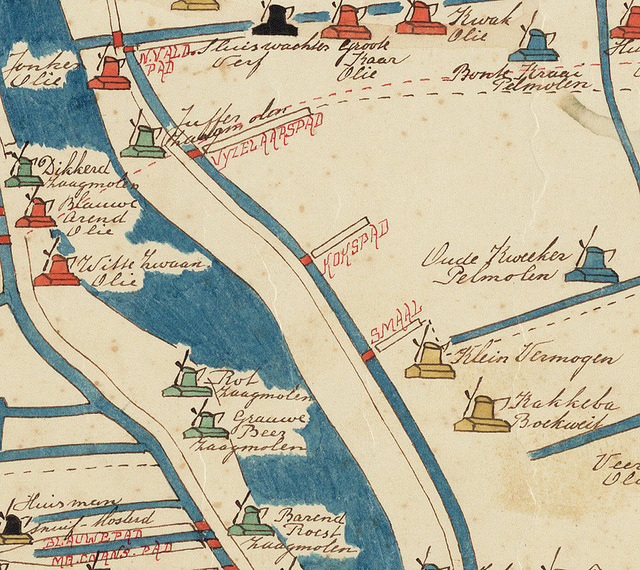 Kwak
Olie
N.V.ALD.
PAD
Sluiswachter
Verf
Groote
Olie
Jonker
Olie
Bonte Kraai
Pelmolen
Juffer
Zaagmolen
VYZELAARSPAD
Dikkerd
Zaagmolen
Blauwe
Arend
Olie
KOKSPAD
Witte Zwaan
Olie
Oude Kweeker
Pelmolen
SMAAL
Klein Vermogen
Rot
Zaagmolen
Kakkeba
Boekweit
Grauwe
Beer
Zaagmolen
Veer
Huisman
Snuif Mosterd
BLAUWEPAD
PAD
Barend
Roest
Zaagmolen